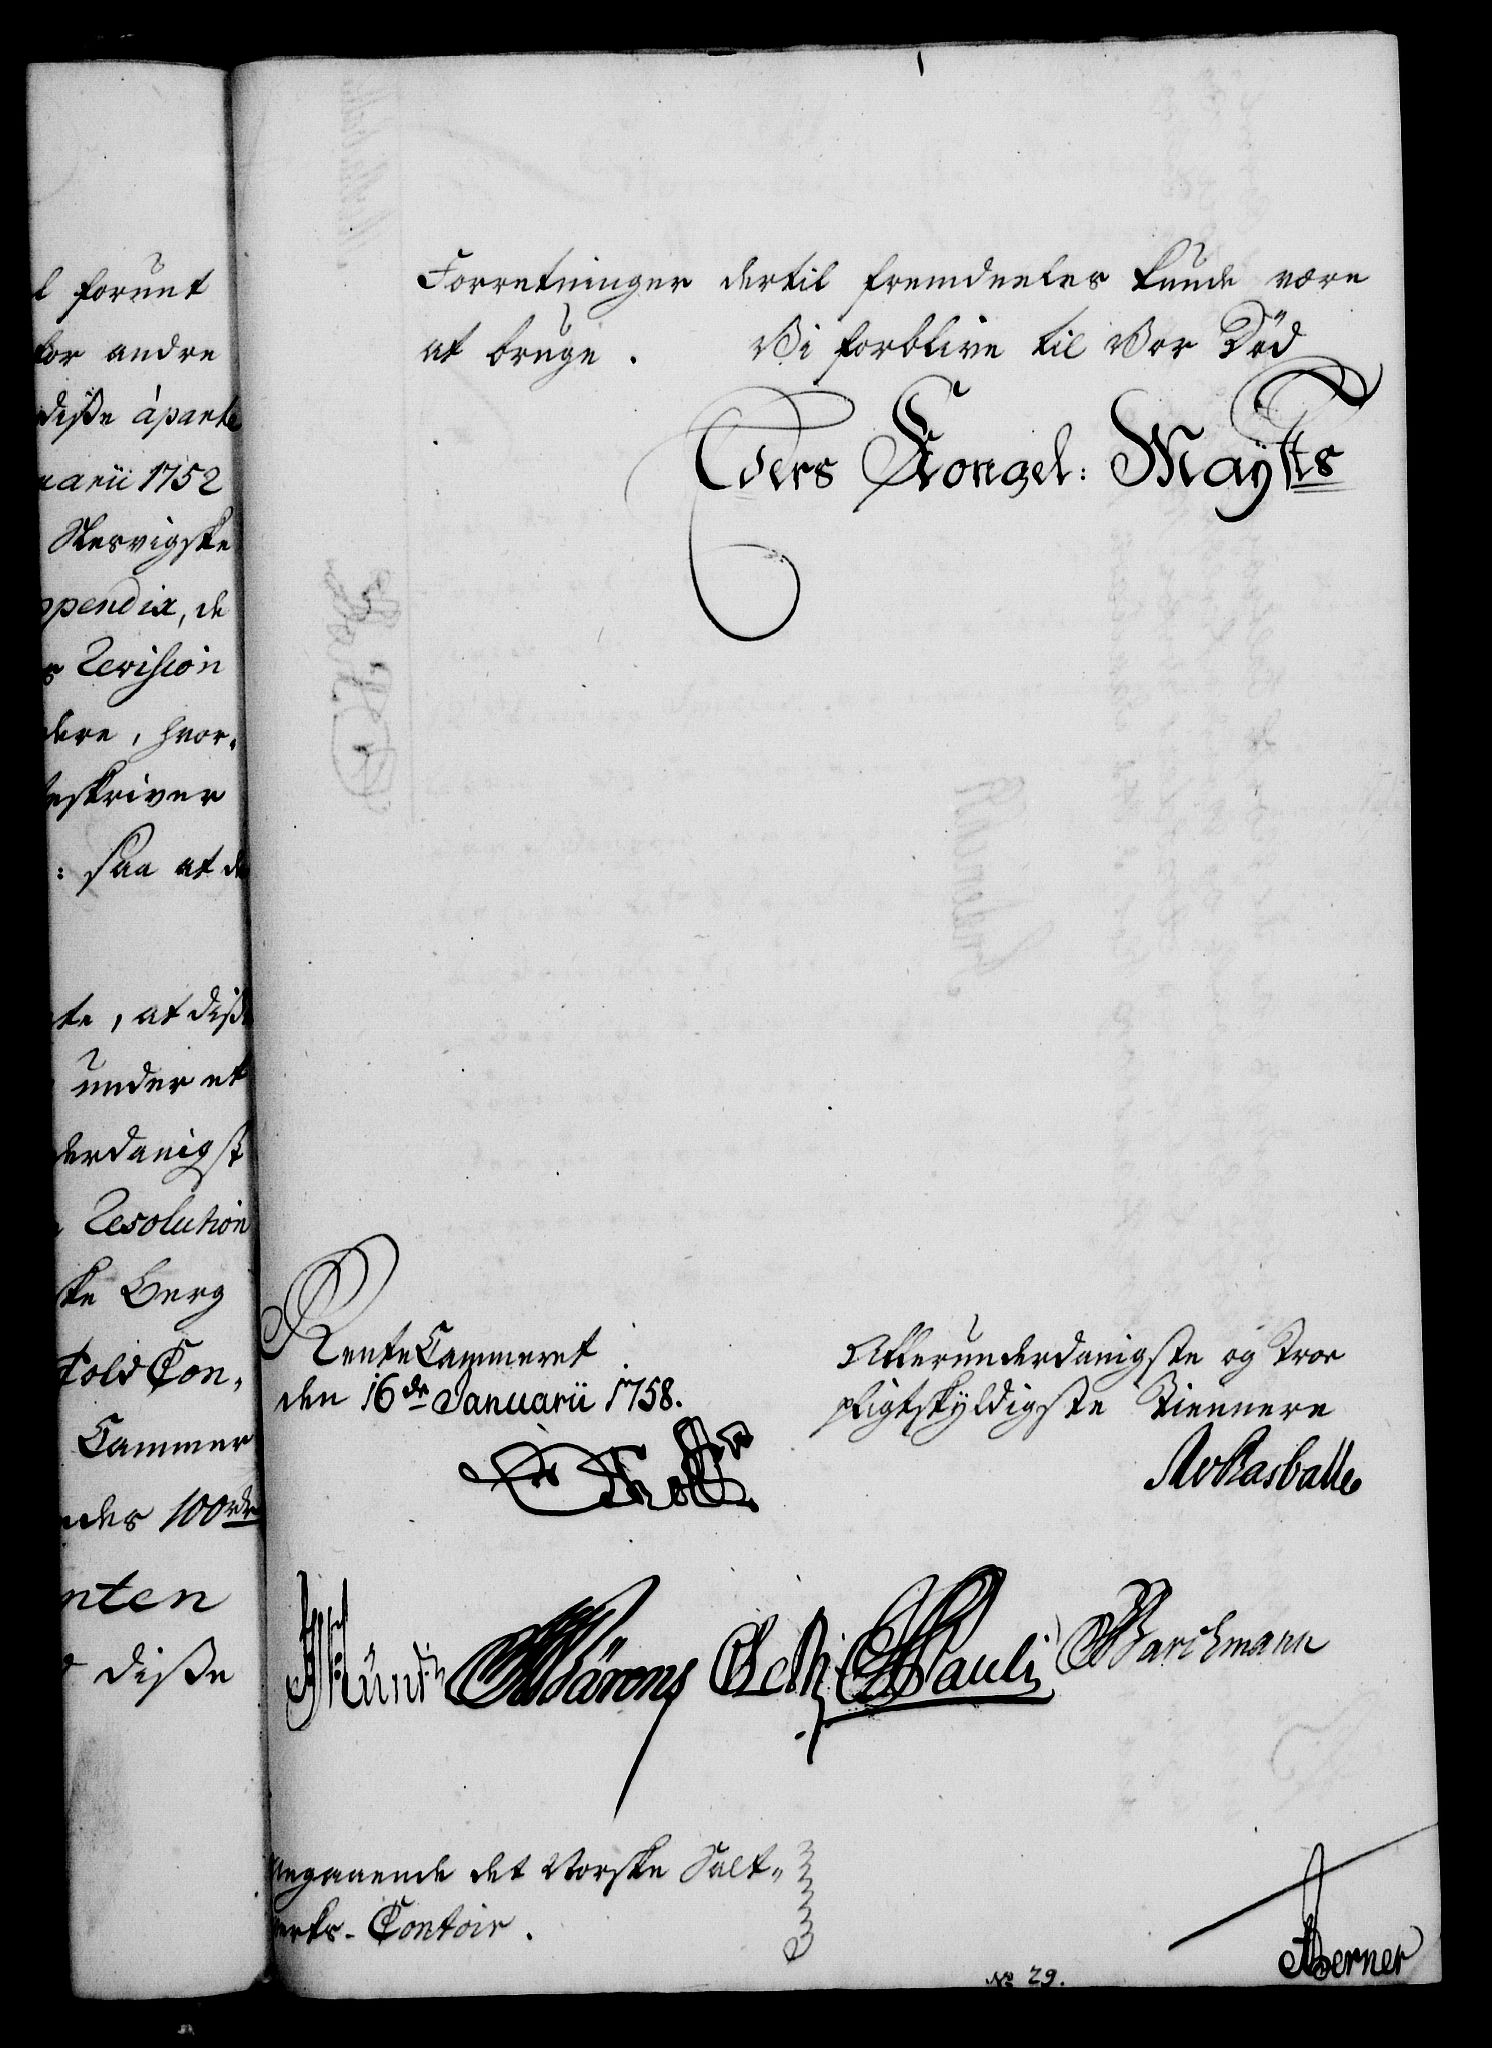 forunt
for andre
diße àparte
uarii 1752
Slesvigske
ppendix, de
Revision
dere, hvor-
skriver
: saa at de
te, at diße
under et
derdanigst
Resolution
ske Berg
Told Con-
Cammer
ndes 100 rdr
nten
diße
Forretninger dertil fremdeeles kunde være
at bruge. Vi forblive til Vor Död
Eders Kongel: Mayts
RenteCammeret
den 16de Januarii 1758.
Allerunderdanigste og Troe
pligtskyldigste Tiennere
Holst
Pauli
Barchmann
Angaaende det Norske Salt-
verks-Contoir.
Berner
No 29.